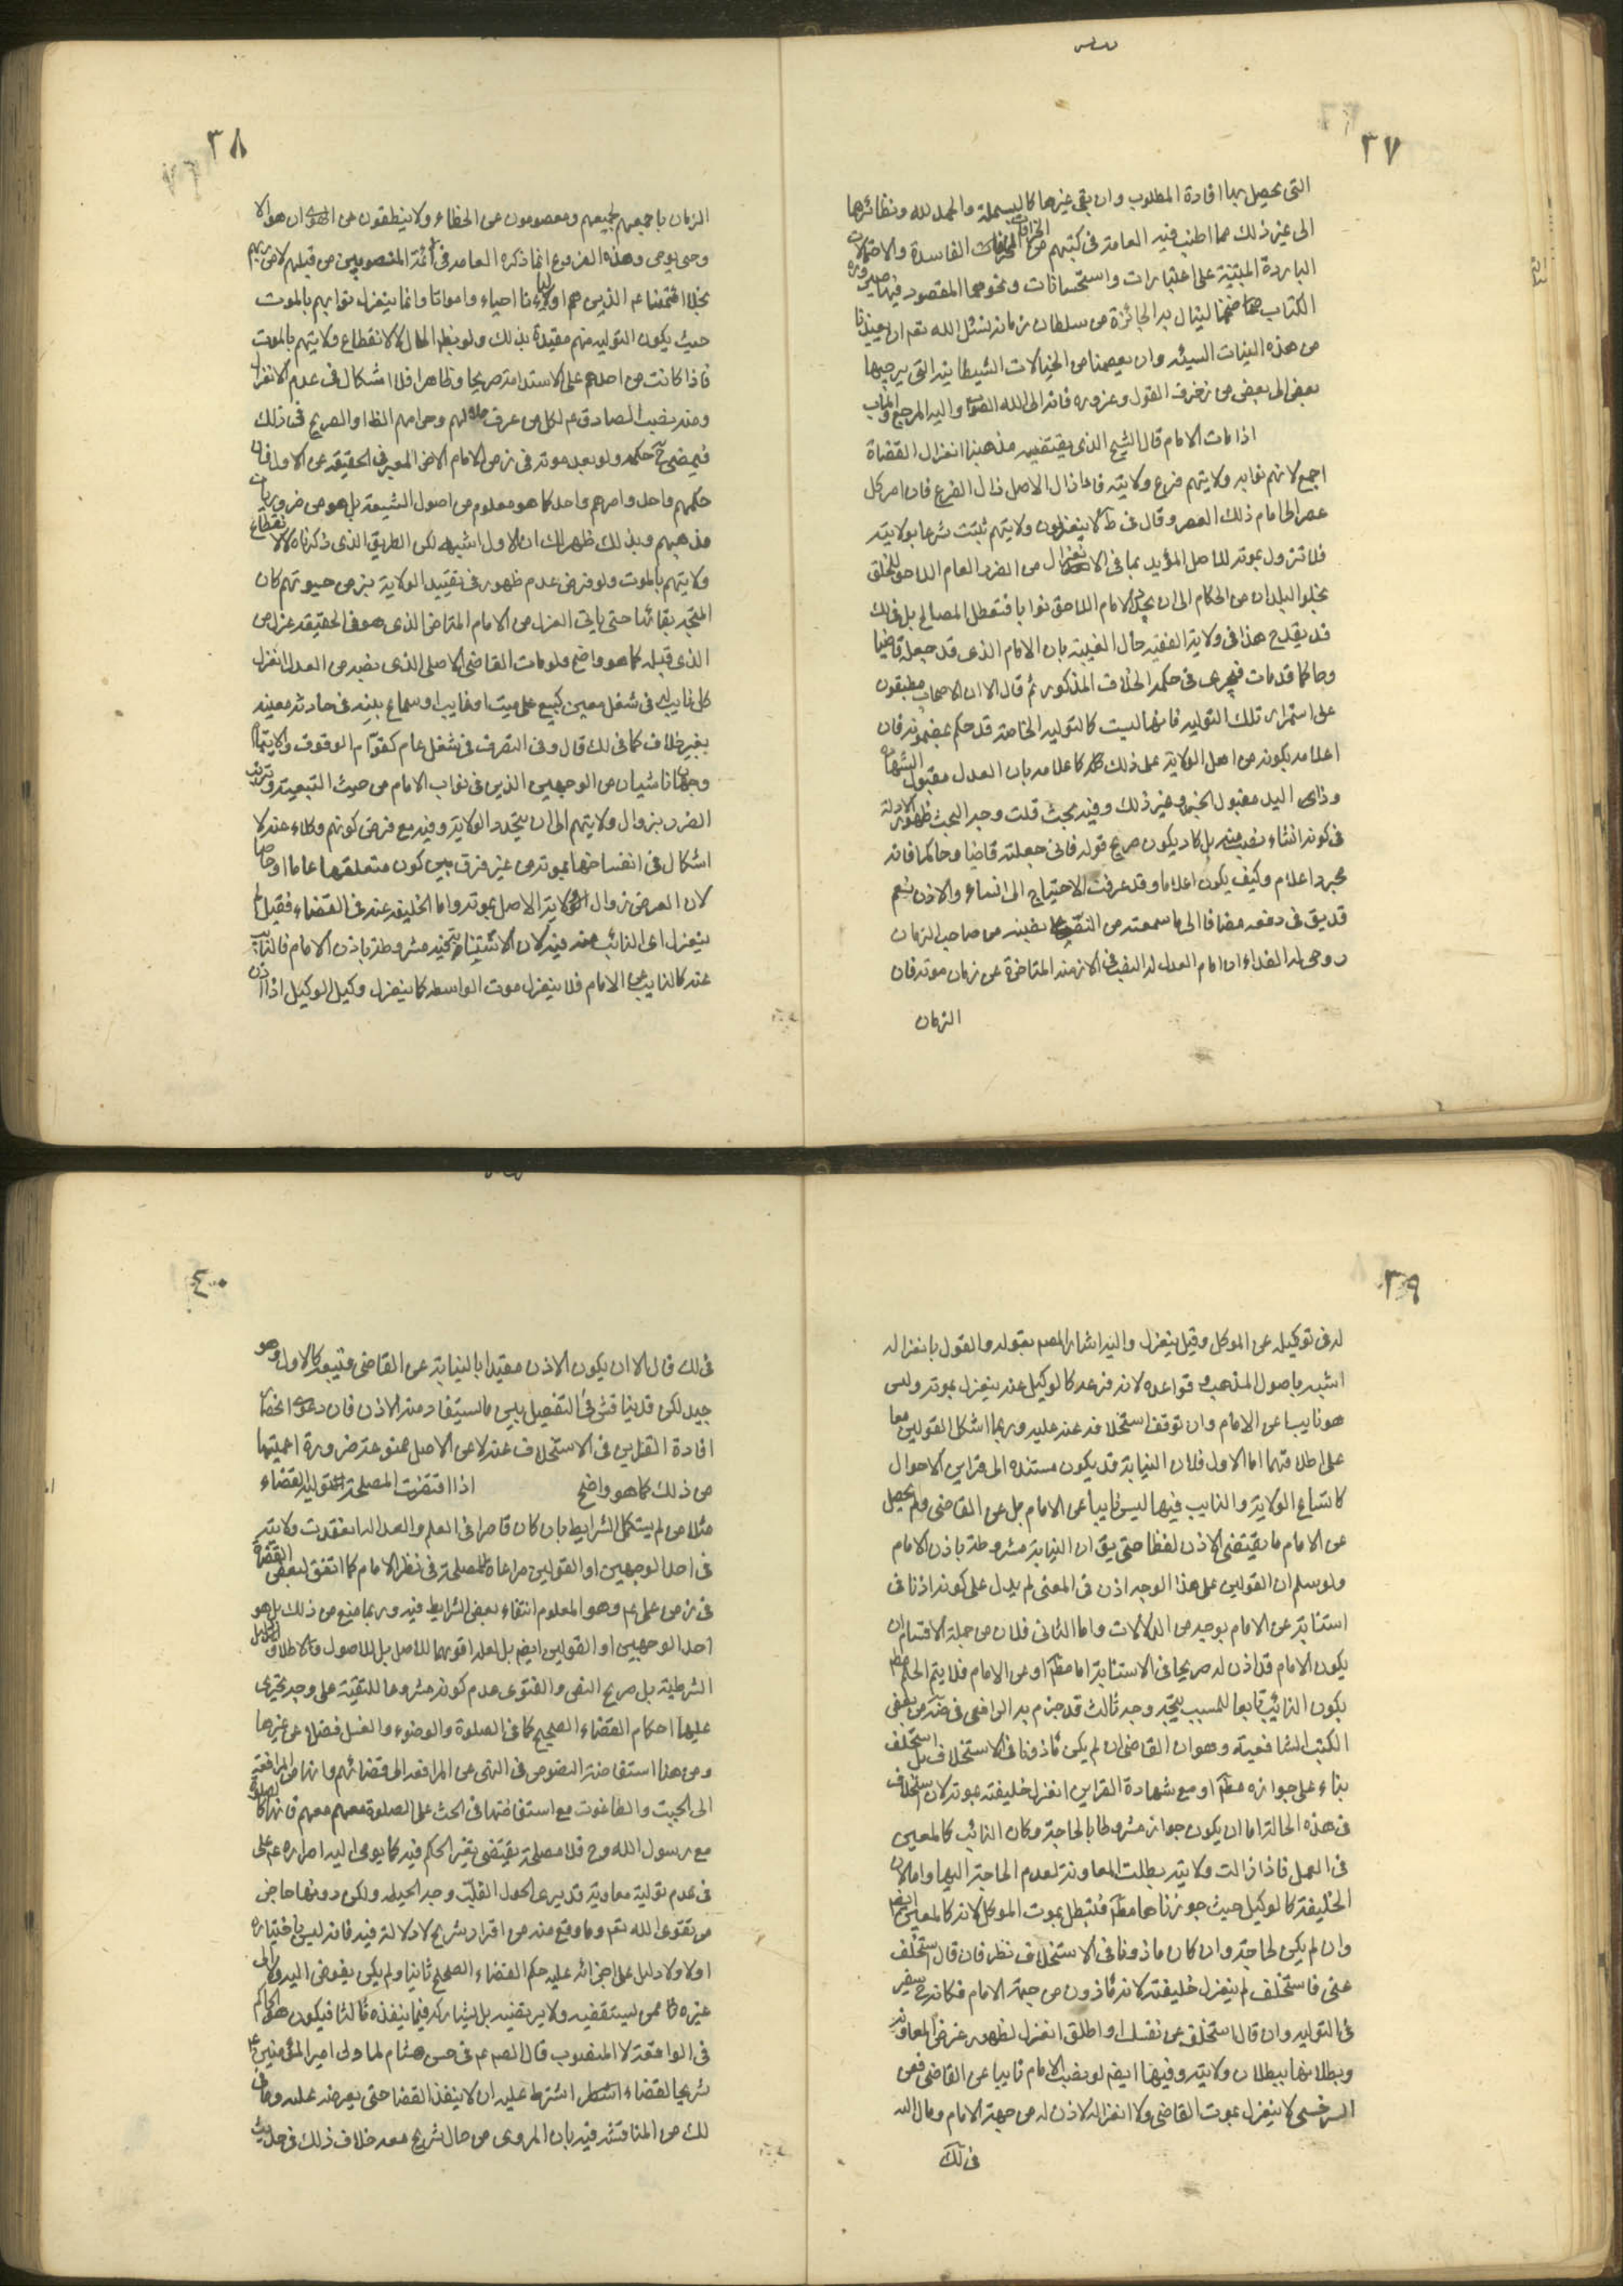 ٣٧
التى يحصل بها افادة المطلوب وان بقى غيرها كالبسملة والحمد لله ونظائرها
الى غير ذلك مما اطنب فيه العامة فى كتبهم من الخرافات الفاسدة والاحتمالات
الباردة المبتنية على اعتبارات واستحسانات ونحوهما المقصود فيها صيرورة
الكتاب ضخما لينال به الجائزة من سلطان زمانه نسئل الله تعم ان يعيذنا
من هذه النيات السيئه وان يعصمنا من الخيالات الشيطانيه التى يرجيها
بعض الى بعض من زخرف القول وغروره فانه الى الله واليه المرجع والمآب
اذا مات الامام قال الشيخ الذى يقتضيه مذهبنا انعزال القضاة
اجمع لانهم نوابه ولايتهم فرع ولايته فاذا زال الاصل زال الفرع فان امر كل
عصر الى امام ذلك العصر وقال فى ط لا ينعزلون ولايتهم ثبتت شرعا بولايته
فلا تزول بموته للاصل المؤيد بما فى الانعزال من الضرر العام اللاحق للخلق
بخلو البلدان من الحكام الى ان يجدد الامام اللاحق نوابا فتعطل المصالح بل فى لك
قد يقدح هذا فى ولاية الفقيه حال الغيبة بان الامام الذى قد جعله قاضيا
وحاكما قد مات فيجرى فى حكمه الخلاف المذكور ثم قال الا ان الاصحاب مطبقون
على استمرار تلك التوليه فانها ليست كالتوليه الخاصة قد حكم بمضمونه فان
اعلامه بكونه من اهل الولاية على ذلك كاعلامه بان العدل مقبول الشهادة
وذا اليد مقبول الخبر وغير ذلك وفيه بحث قلت وجه البحث ظهور الادلة
فى كونه انشاء نصب منه بل كاد يكون صريح قوله فانى جعلته قاضيا وحاكما فانه
مجرد اعلام وكيف يكون اعلاما وقد عرفت الاحتياج الى انشاء والاذن نعم
قد يق فى دفعه مضافا الى ما سمعته من النص على نصبه من صاحب الزمان
روحى له الفداء ان امام العدل له النصب فى الازمنه المتاخرة عن زمان موته فان
الزمان
٣٨
الزمان باجمعهم لجميعهم ومعصومون عن الخطاء ولا ينطقون عن الهوى ان هو الا
وحى يوحى وهذه الفروع انما ذكره العامه فى ائمة المنصوبين من قبلهم لا من ربهم
بخلاف ائمتنا عم الذين هم اولياؤنا احياء وامواتا وانما ينعزل نوابهم بالموت
حيث يكون التوليه منهم مقيدة بذلك ولو بظ الحال لا لانقطاع ولايتهم بالموت
فاذا كانت من احدهم على الاستدامة صريحا وظاهرا فلا اشكال فى عدم الانعزال
ومنه نصب الصادق عم لكل من عرف حلالهم وحرامهم الظا او الصريح فى ذلك
فيمضى ح حكمه ولو بعد موته فى زمن الامام الاخر المعبر فى الحقيقه عن الاول فان
حكمهم واحد وامرهم واحد كما هو معلوم من اصول الشيعة بل هو من ضروريات
مذهبهم وبذلك ظهر لك ان الاول اشبه لكن الطريق الذى ذكرناه لا لانقطاع
ولايتهم بالموت ولو فرض عدم ظهور فى تقييد الولاية بزمن حيوتهم كان
المتجه بقائها حتى ياتى العزل من الامام المتاخر الذى هو فى الحقيقه عزل من
الذى قبله كما هو واضح ولو مات القاضى الاصلى الذى نصبه من العدل انعزل
كل نايب له فى شغل معين كبيع على ميت او غايب او سماع بينه فى حادثه معينه
بغير خلاف كما فى لك قال وفى التصرف فى شغل عام كقوّام الوقوف والايتام
وجهان ناشيان من الوجهين الذين فى نواب الامام من حيث التبعية وترتب
الضرر بزوال ولايتهم الى ان يتجدد الولاية وفيه مع فرض كونهم وكلاء عنه لا
اشكال فى انفساخها بموته من غير فرق بين كون متعلقها عاما او خاصا
لان الفرض زوال ولاية الاصل بموته واما الخليفه عنه فى القضاء فقيل لا
ينعزل اى النائب عنه فيه لان الاستنابة فيه مشروطة باذن الامام فالنائب
عنه كالنايب عن الامام فلا ينعزل بموت الواسطه كما لا ينعزل وكيل الوكيل اذا اذن
٣٩
له فى توكيله عن الموكل وقيل ينعزل واليه اشار المصم بقوله والقول بانعزاله
اشبه باصول المذهب وقواعده لانه فرعه كالوكيل عنه ينعزل بموته وليس
هو نايبا عن الامام وان توقف استخلافه عنه عليه وربما اشكل القولين معا
على اطلاقهما اما الاول فلان النيابة قد يكون مستنده الى قراين الاحوال
كاتساع الولاية والنايب فيها ليس نايبا عن الامام بل عن القاضى ولم يحصل
عن الامام ما يقتضى الاذن لفظا حتى يق ان النيابة مشروطة باذن الامام
ولو سلم ان القولين على هذا الوجه اذن فى المعنى لم يدل على كونه اذنا فى
استنابة عن الامام بوجه من الدلالات واما الثانى فلان من جملة الاقسام ان
يكون الامام قد اذن له صريحا فى الاستنابة اما مطلقا او عن الامام فلا يتم الحكم
بكون النائب تابعا للمسبب يتجه وجه ثالث قد جزم به الرافعى من بعض
الكتب الشافعية وهو ان القاضى ان لم يكن ماذونا فى الاستخلاف بل استخلف
بناء على جوازه مطلقا او مع شهادة القراين انعزل خليفته بموته لان استخلافه
فى هذه الحالة اما ان يكون جوازه مشروطا بالحاجة وكان النائب كالمعين
فى العمل فاذا زالت ولايته بطلت المعاونة لعدم الحاجة اليها واما لان
الخليفة كالوكيل حيث جوزناها مطلقا فتبطل بموت الموكل لانه كالمعين ايضا
وان لم يكن لحاجة وان كان ماذونا فى الاستخلاف نظر فان قال استخلف
عنى فاستخلف لم ينعزل خليفته لانه ماذون من جهة الامام فكانه سفير
فى التوليه وان قال استخلف عن نفسك او اطلق انعزل لظهور غرض المعاونة
وبطلانها ببطلان ولايته وفيها ايضم لو نصب الامام نايبا عن القاضى فعن
السرخسى لا ينعزل بموت القاضى ولا انعزاله لاذن له من جهة الامام ومال اليه
فى لك
٤٠
فى لك قال الا ان يكون الاذن مقيدا بالنيابة عن القاضى فتبعه كالاول وهو
جيد لكن قد يناقش فى التفصيل بين ما يستفاد منه الاذن فان دعوى انحصار
افادة القراين فى الاستخلاف عنه لا عن الاصل ممنوعة ضرورة اعميتها
من ذلك كما هو واضح اذا اقتضت المصلحة تولية القضاء
مثلا من لم يستكمل الشرايط بان كان قاصرا فى العلم والعدالة انعقدت ولايته
فى احد الوجهين او القولين مراعاة للمصلحة فى نظر الامام كما اتفق لبعض القضاة
فى زمن على عم وهو المعلوم انتفاء بعض الشرايط فيه وربما منع من ذلك بل هو
احد الوجهين او القولين ايضم بل لعله اقويهما للاصل بل للاصول والاطلاق
الشرطية بل صريح النص والفتوى عدم كونه مشروعا للتقية على وجه يجرى
عليها احكام القضاء الصحيح كما فى الصلوة والوضوء والغسل فضلا عن غيرها
ومن هنا استفاضة النصوص فى النهى عن المرافعه الى قضائهم وانها من المرافعة
الى الجبت والطاغوت مع استفاضتها فى الحث على الصلوة معهم فانها كالصلوة
مع رسول الله وح فلا مصلحة يقتضى تغير الحكم فيه كما يومى اليه اصراره عم على
فى عدم تولية معاوية قد يرى الحول القلّب وجه الحيله ولكن دونها حاجز
من تقوى الله تعم وما وقع منه من اقرار شريح لا دلالة فيه فانه ليس باختياره
اولا ولا دليل على اجرائه عليه حكم القضاء الصحيح ثانيا ولم يكن يفوض اليه ولا الى
غيره ممن يستقضيه ولا يرتضيه بل يشاركه فيما ينفذه ثالثا فيكون هو الحاكم
فى الواقعة لا المنصوب قال الصم عم فى حسن هشام لما ولى امير المؤمنين عم
شريحا القضاء اشترط عليه ان لا ينفذ القضا حتى يعرضه عليه وما فى
لك من المناقشة فيه بان المروى من حال شريح معه خلاف ذلك فى حديث